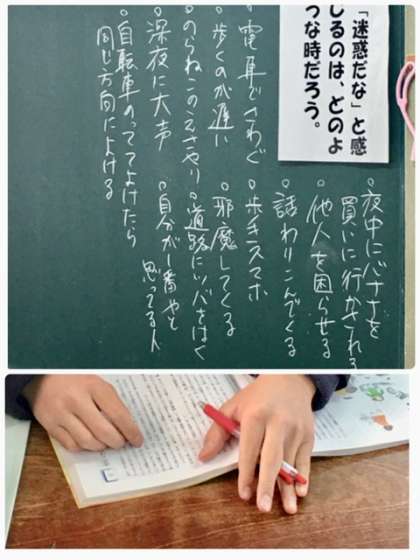 「迷惑だな」と感
じるのは、どのよ
うな時だろう。
。電車でさわぐ
。歩くのが遅い
。のらねこのえさやり
。深夜に大声
。自転車のっててよけたら
同じ方向によける
。夜中にバナナを
買いに行かされる
。他人を困らせる
。話わりこんでくる
。歩きスマホ
。邪魔してくる
。道路にツバをはく
。自分が1番やと
思ってる人